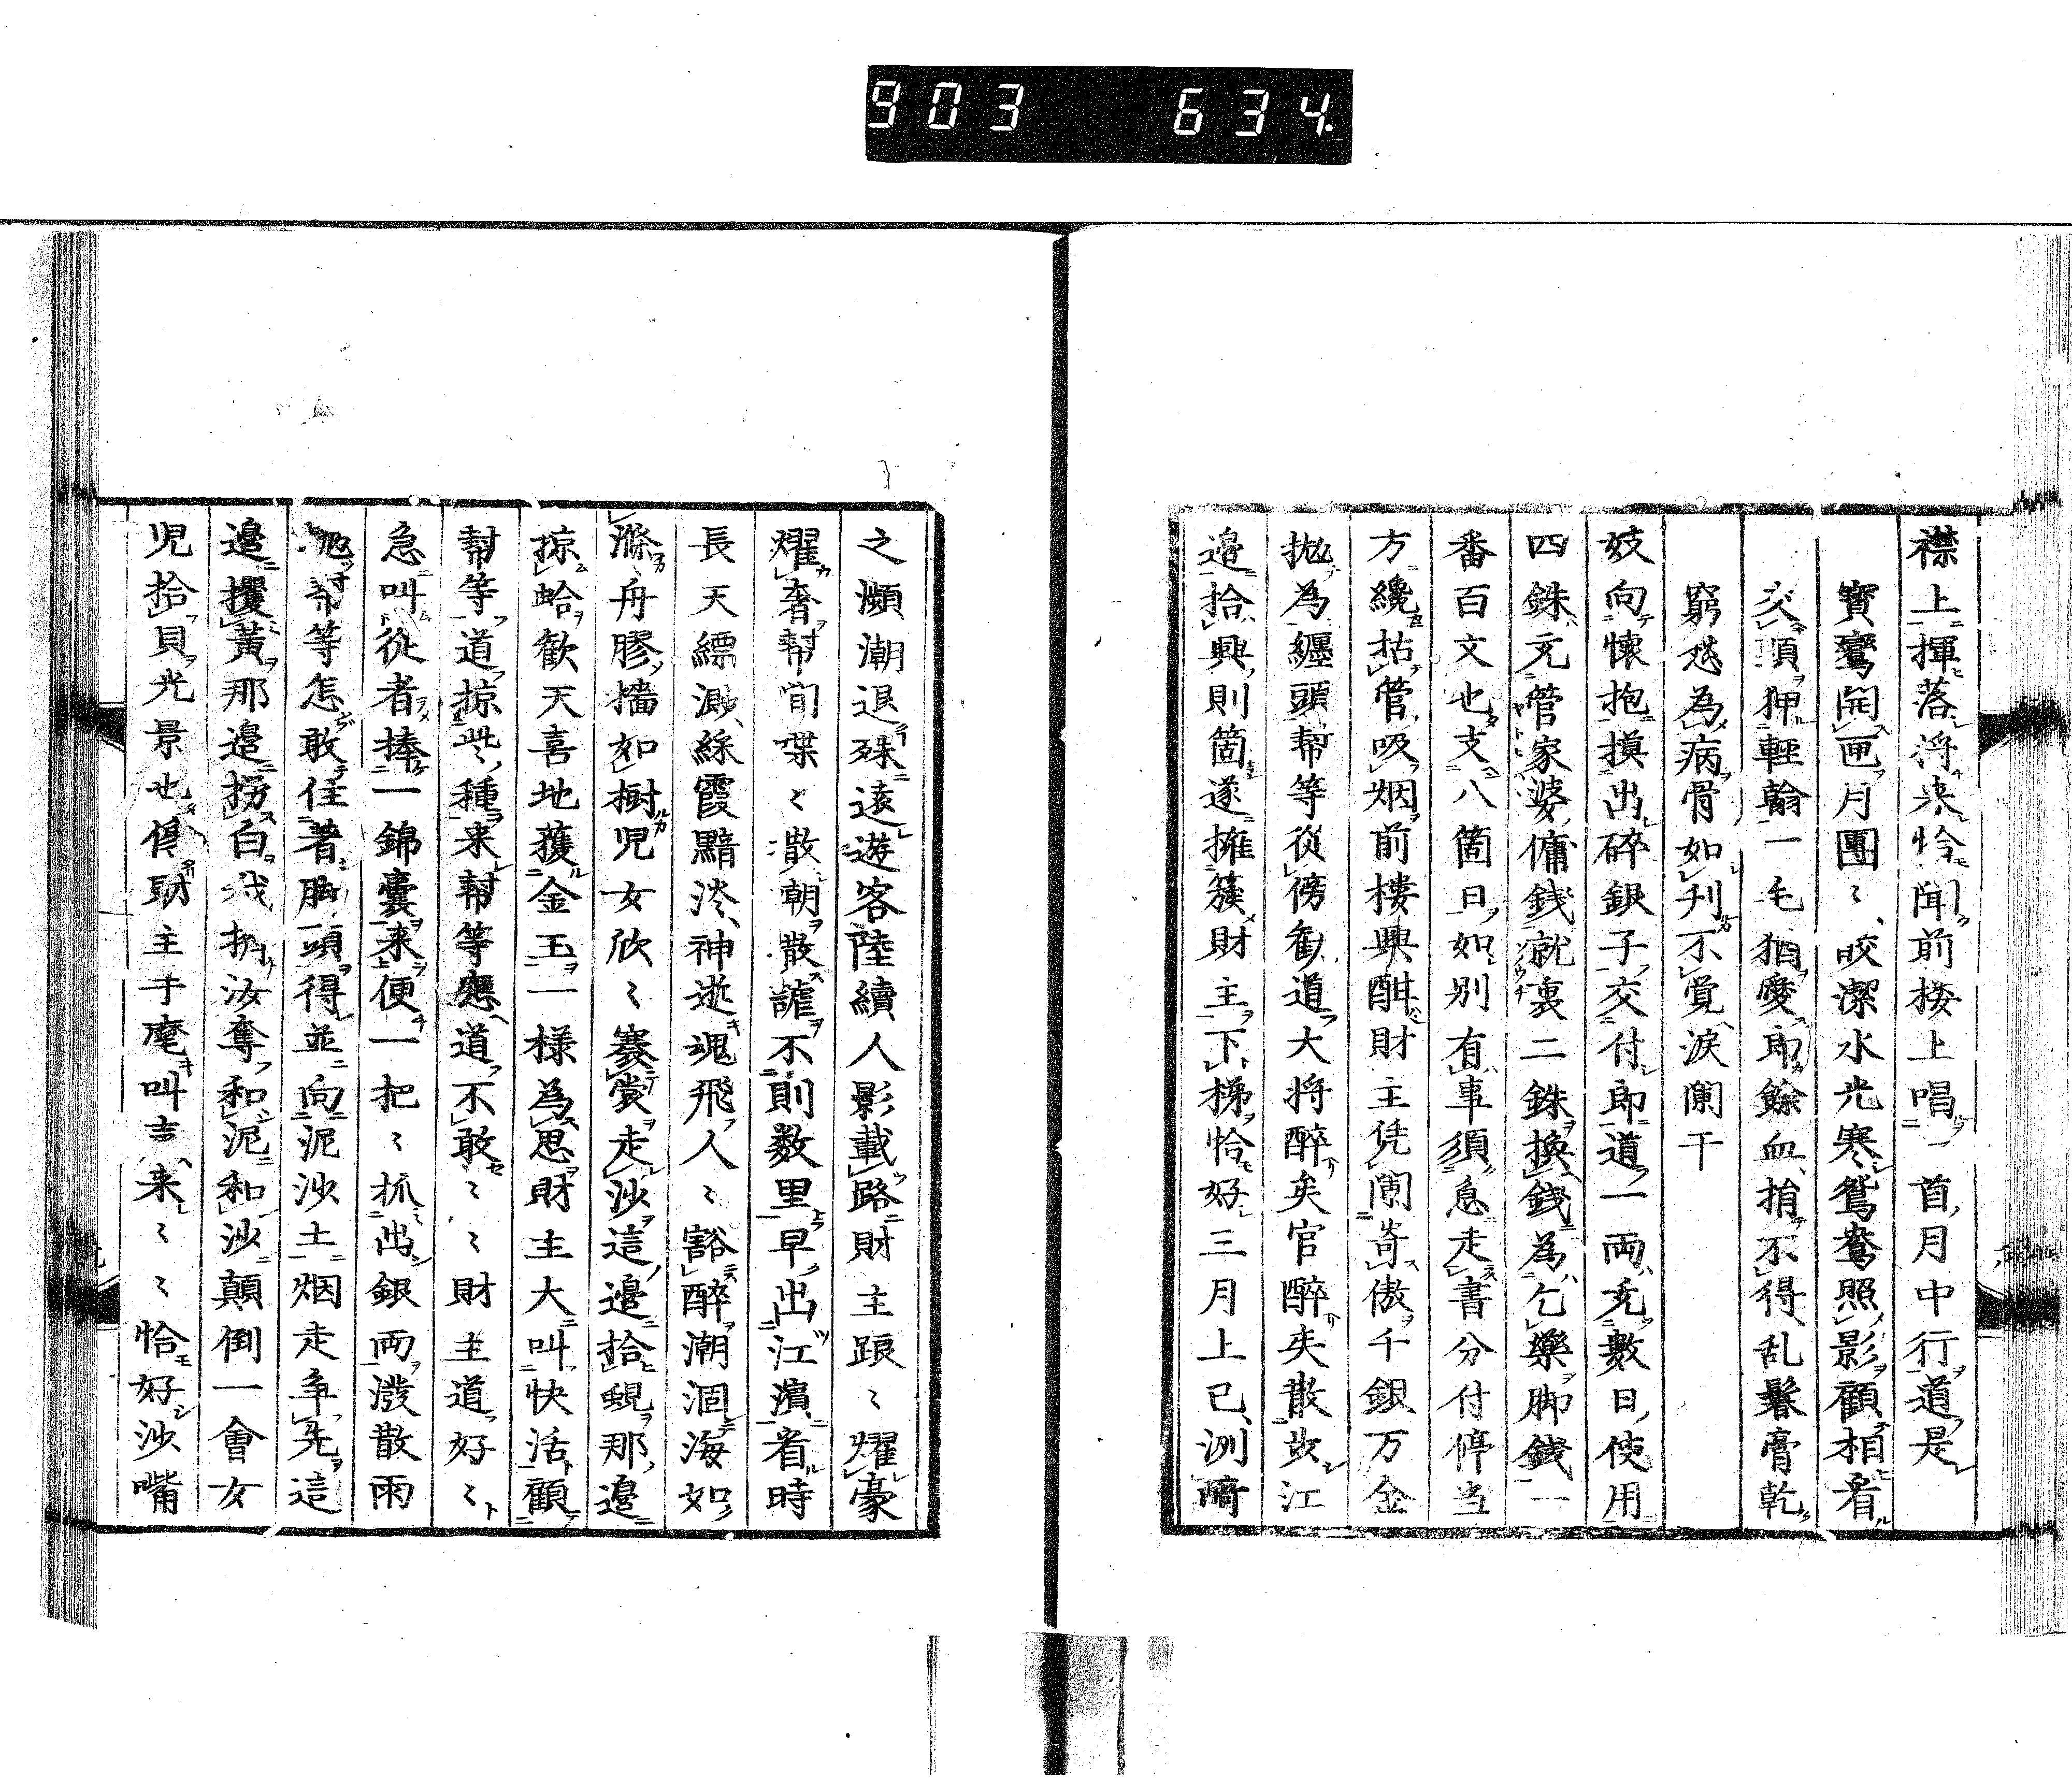 903 634
襟上揮落将来恰聞前楼上唱一首月中行道是
寶鸞開匣月團〻皎潔水光寒鴛鴦照影顧相看
交頸狎輕翰一毛猶愛郎餘血捐不得乱鬟膏乾
窮愁為病骨如刋不覺涙闌干
妓向懐抱摸出碎銀子交付郎道一両充數日使用
四銖充管家婆傭錢就裏二銖換錢為乞藥脚錢一
番百文也支八箇日如別有事須急走書分付停当
方纔拈管吸烟前楼興酣財主凭闌寄傲千銀万金
抛為纏頭幇等從傍勧道大将醉矣官醉矣散歩江
邊拾興則箇遂擁簇財主下梯恰好三月上已洲﨑
之瀕潮退殊遠遊客陸續人影載路財主踉〻燿豪
燿奢幇間喋〻散朝散謔不則数里早出江濵看時
長天縹渺綵霞黯淡神逝魂飛人〻豁醉潮涸海如
滌舟膠檣如樹児女欣〻褰裳走沙這邊拾蜆那邊
掠蛤歓天喜地獲金玉一様為思財主大叫快活顧
幇等道掠此種来幇等應道不敢〻〻財主道好〻
急叫從者捧一錦囊来便一把〻抓出銀両潑散雨
幇等怎敢住著脚頭得並向泥沙土烟走争先這
邊攫黃那邊拐白我抓汝奪和泥和沙顛倒一會女
児拾貝光景也修財主手麾叫吉来〻〻恰好沙嘴